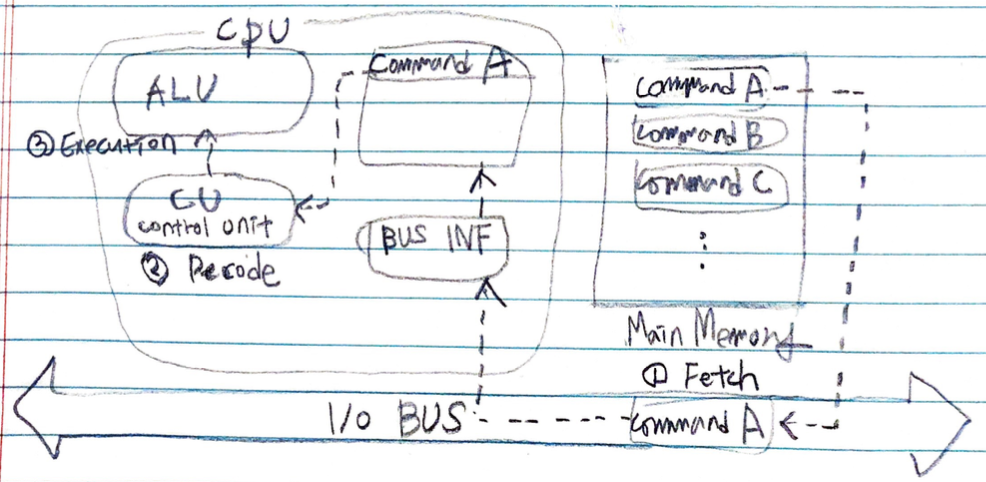 CPU
ALU
Command A
③ Execution
CU
control unit
② Decode
BUS INF
Command A
Command B
Command C
Main Memory
① Fetch
I/O BUS
Command A